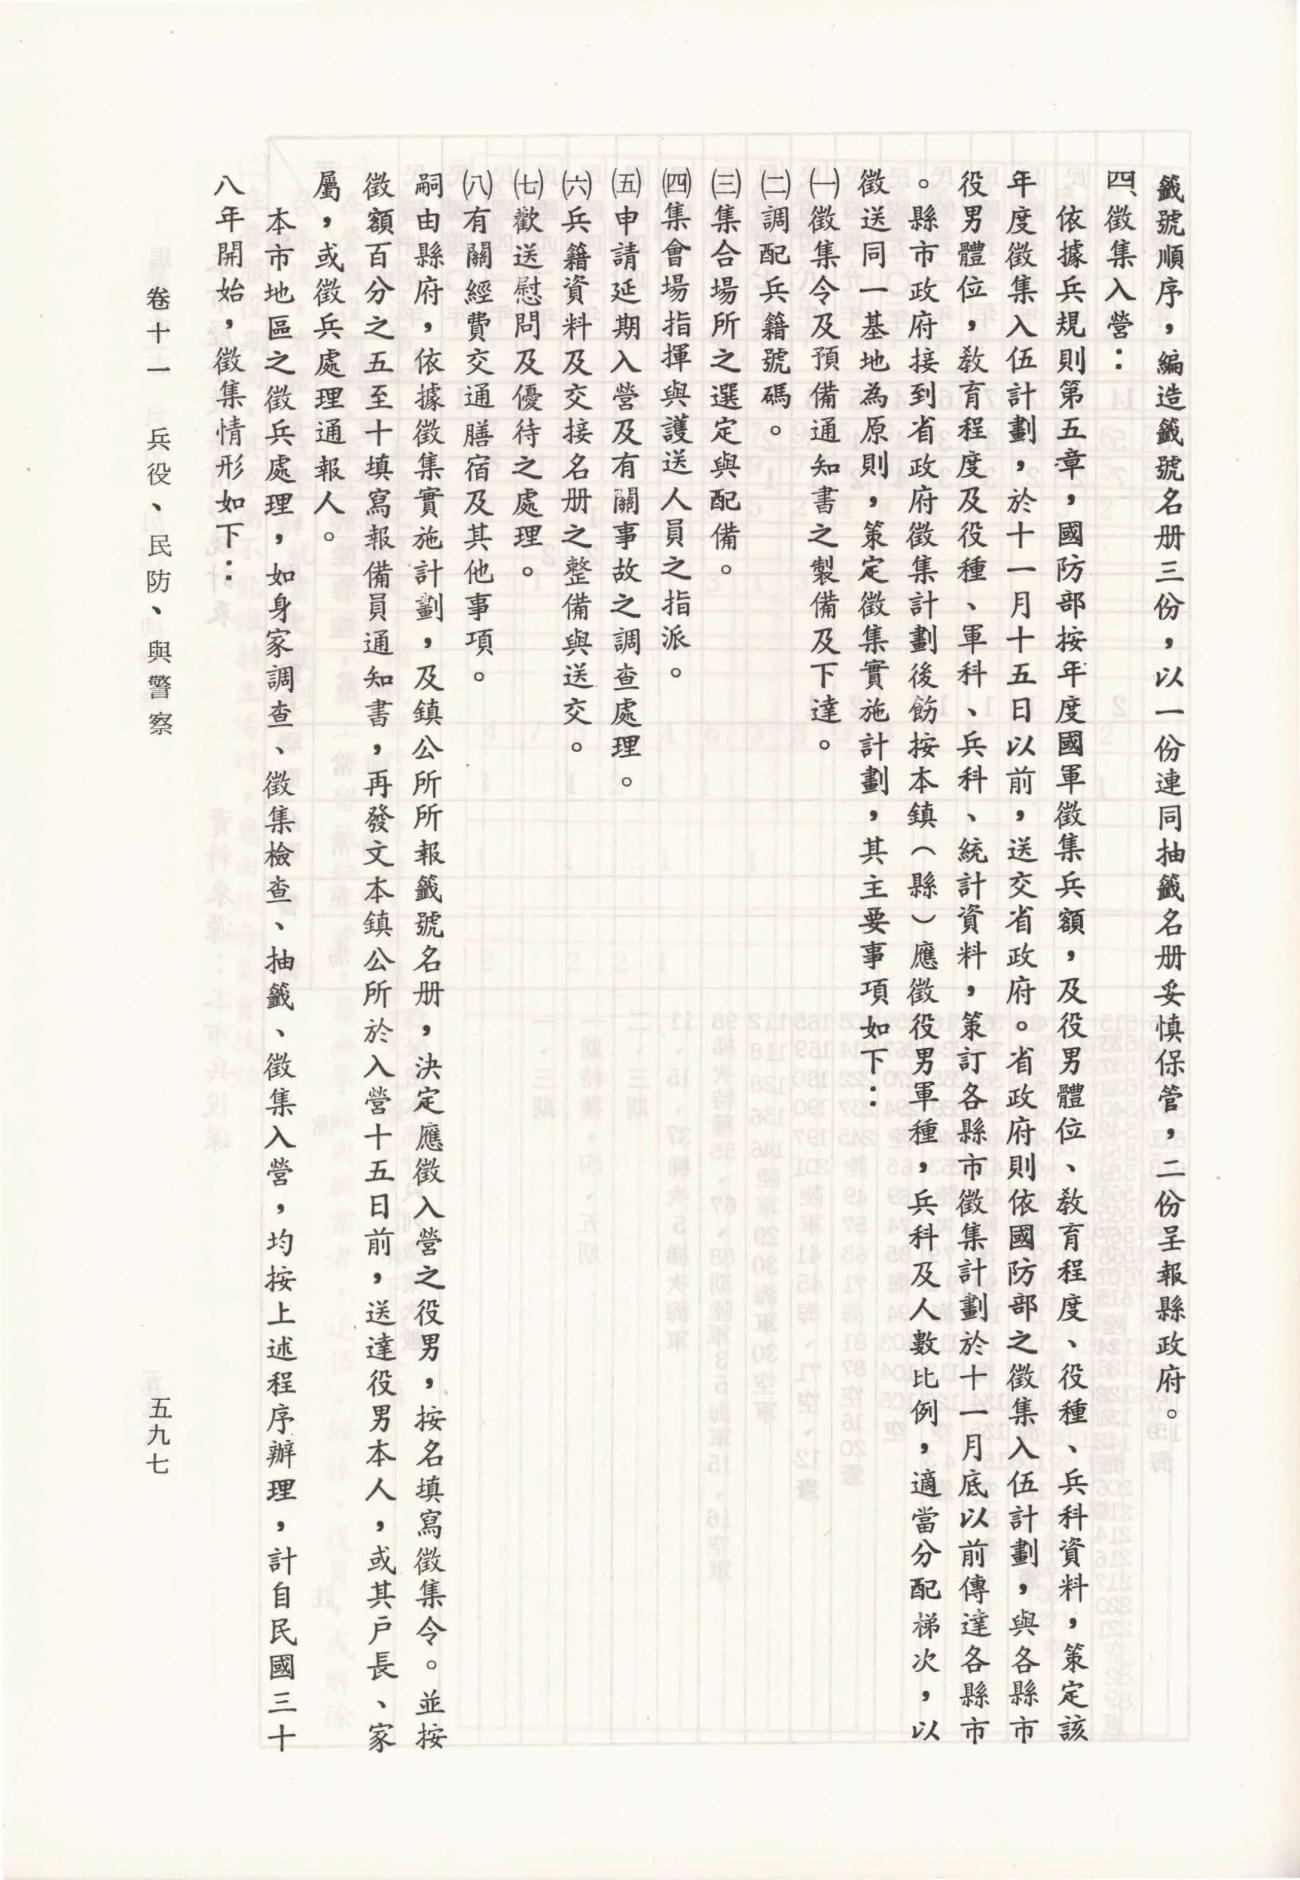 籤號順序，編造籤號名册三份，以一份連同抽籤名册妥慎保管，二份呈報縣政府。
四、徵集入營：
依據兵規則第五章，國防部按年度國軍徵集兵額，及役男體位、敎育程度、役種、兵科資料，策定該
年度徵集入伍計劃，於十一月十五日以前，送交省政府。省政府則依國防部之徵集入伍計劃，與各縣市
役男體位，敎育程度及役種、軍科、兵科、統計資料，策訂各縣市徵集計劃於十一月底以前傳達各縣市
。縣市政府接到省政府徵集計劃後飭按本鎮（縣）應徵役男軍種，兵科及人數比例，適當分配梯次，以
徵送同一基地為原則，策定徵集實施計劃，其主要事項如下：
㈠徵集令及預備通知書之製備及下達。
㈡調配兵籍號碼。
㈢集合場所之選定與配備。
㈣集會場指揮與護送人員之指派。
㈤申請延期入營及有關事故之調查處理。
㈥兵籍資料及交接名册之整備與送交。
㈦歡送慰問及優待之處理。
㈧有關經費交通膳宿及其他事項。
嗣由縣府，依據徵集實施計劃，及鎮公所所報籤號名册，決定應徵入營之役男，按名填寫徵集令。並按
徵額百分之五至十填寫報備員通知書，再發文本鎮公所於入營十五日前，送達役男本人，或其戶長、家
屬，或徵兵處理通報人。
本市地區之徵兵處理，如身家調查、徵集檢查、抽籤、徵集入營，均按上述程序辦理，計自民國三十
八年開始，徵集情形如下：
卷十一　兵役、民防、與警察
五九七